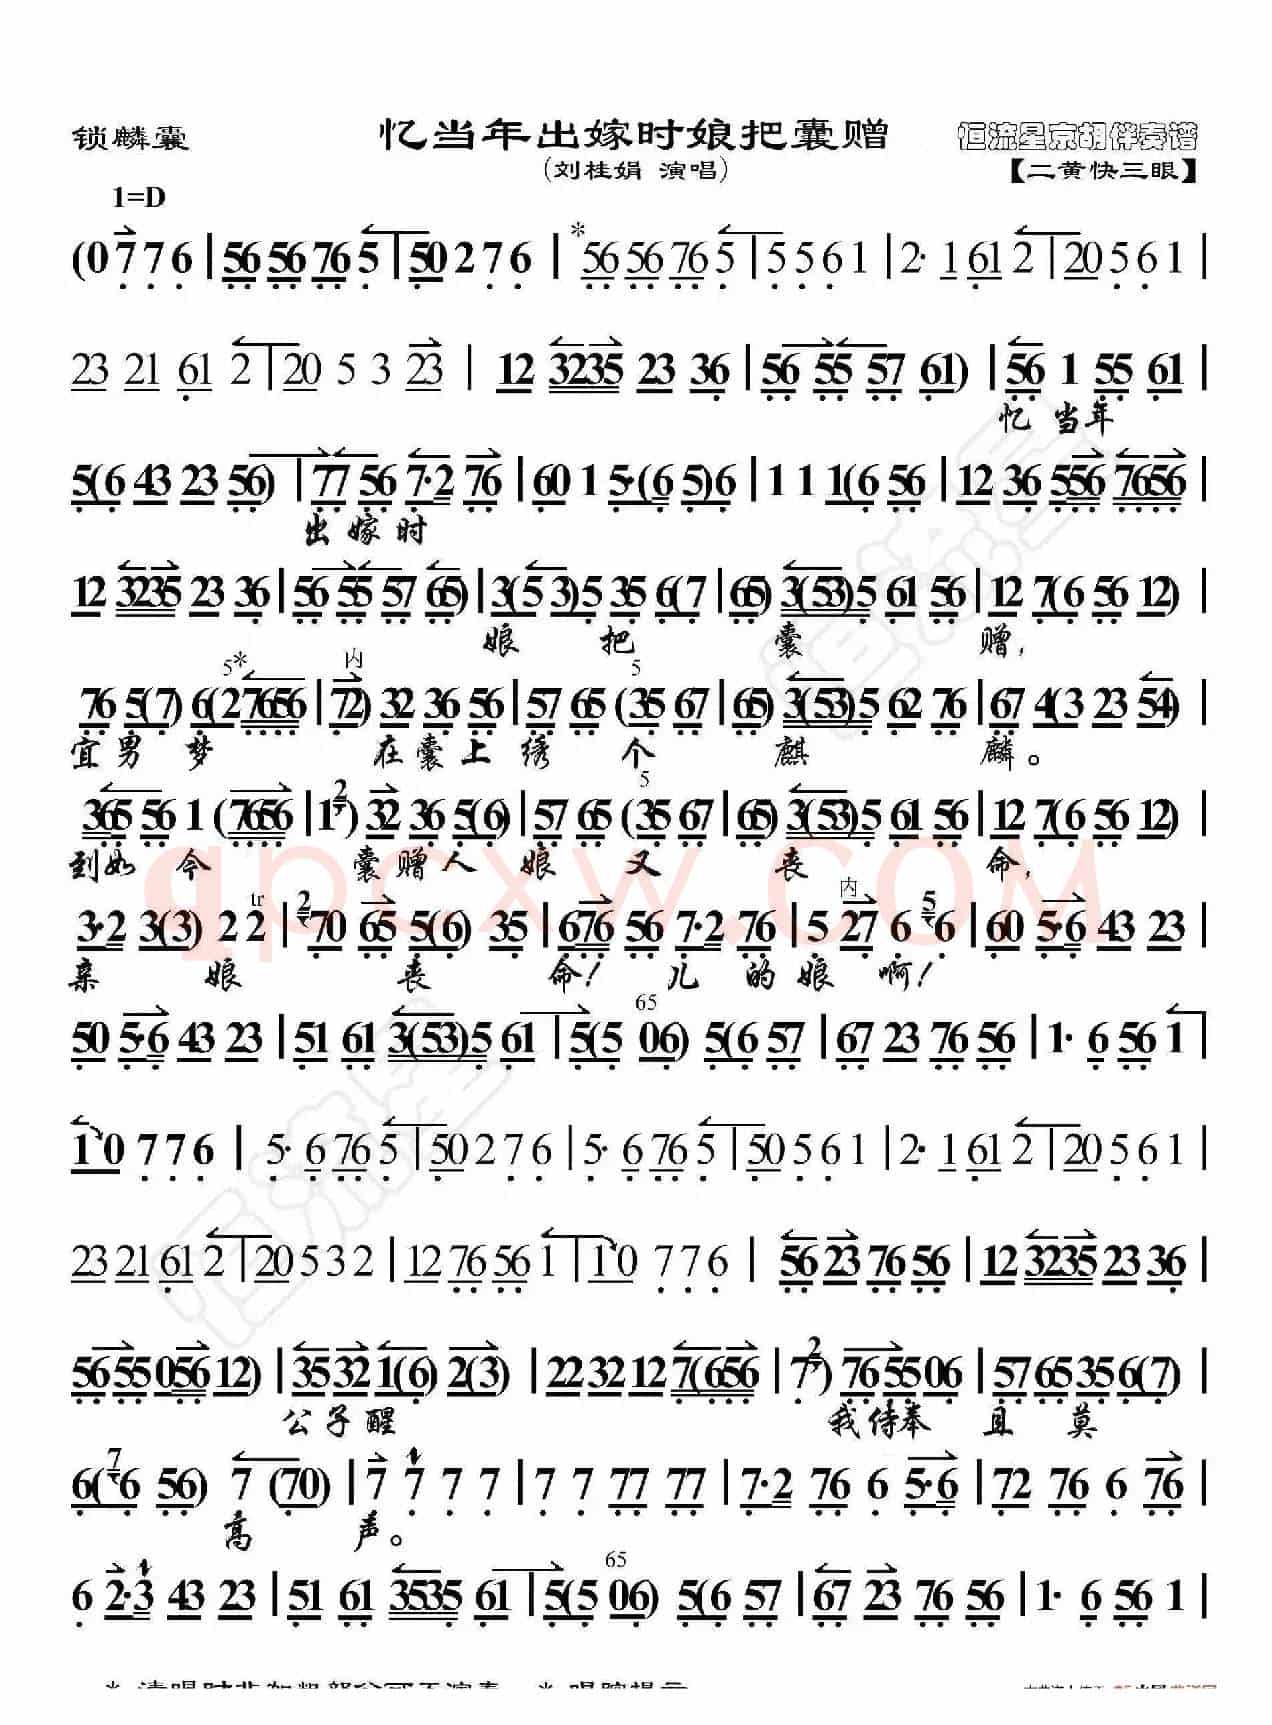 锁麟囊 忆当年出嫁时娘把囊赠 恒流星京胡伴奏谱
(刘桂娟 演唱) 【二黄快三眼】
1=D
(0 7 7 6 | 56 56 76 5 | 50 2 7 6 | * 56 56 76 5 | 5 5 6 1 | 2· 1 61 2 | 20 5 6 1 |
23 21 61 2 | 20 5 3 23 | 12 3235 23 36 | 56 55 57 61) | 56 1 55 61 |
忆 当年
5(6 43 23 56) | 77 56 7·2 76 | 60 1 5·(6 5)6 | 1 1 1(6 56 | 12 36 556 7656 |
出嫁时
12 3235 23 36 | 56 55 57 65) | 3(5 3)5 35 6(7 | 65) 3(53)5 61 56 | 12 7(6 56 12) |
娘 把 囊 赠,
5* 内 5
76 5(7) 6(27656 | 72) 32 36 56 | 57 65 (35 67 | 65) 3(53)5 62 76 | 67 4(3 23 54) |
宜男梦 在囊上绣 个 麒 麟。
2 5
365 56 1 (7656 | 1) 32 36 5(6) | 57 65 (35 67 | 65) 3(53)5 61 56 | 12 7(6 56 12) |
到如今 囊赠人 娘 又 丧 命,
tr 2 内 5
3·2 3(3) 2 2 | 70 65 5(6) 35 | 676 56 7·2 76 | 5 27 6 6 | 60 5·6 43 23 |
亲 娘 丧 命! 儿 的娘啊!
65
50 5·6 43 23 | 51 61 3(53)5 61 | 5(5 06) 5(6 57 | 67 23 76 56 | 1· 6 56 1
1 0 7 7 6 | 5· 6 76 5 | 50 2 7 6 | 5· 6 76 5 | 50 5 6 1 | 2· 1 61 2 | 20 5 6 1 |
23 21 61 2 | 20 5 3 2 | 12 76 56 1 | 1 0 7 7 6 | 56 23 76 56 | 12 3235 23 36 |
2
56 55 056 12) | 35 32 1(6) 2(3) | 22 32 12 7(656 | 7) 76 55 06 | 57 65 35 6(7) |
公子醒 我侍奉 且 莫
7
6(6 56) 7 (70) | 7 7 7 7 | 7 7 77 77 | 7·2 76 6 5·6 | 72 76 6 76 |
高 声。
65
6 2·3 43 23 | 51 61 3535 61 | 5(5 06) 5(6 57 | 67 23 76 56 | 1· 6 56 1 |
qpcxw.com
恒流星
恒流星